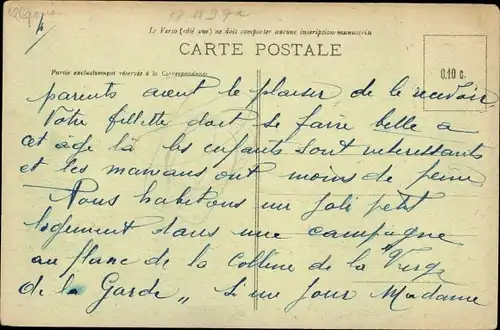 Algérie
Le Verso (côté vue) ne doit comporter aucune inscription manuscrite
CARTE POSTALE
Partie exclusivement réservée à la Correspondance
0.10 c.
parents aient le plaisir de le recevoir
Votre fillette doit se faire belle a
cet age là les enfants sont interessants
et les mamans ont moins de peine
Nous habitons un joli petit
logement dans une campagne
au flanc de la Colline de la "Vierge
de la Garde" Si un jour Madame